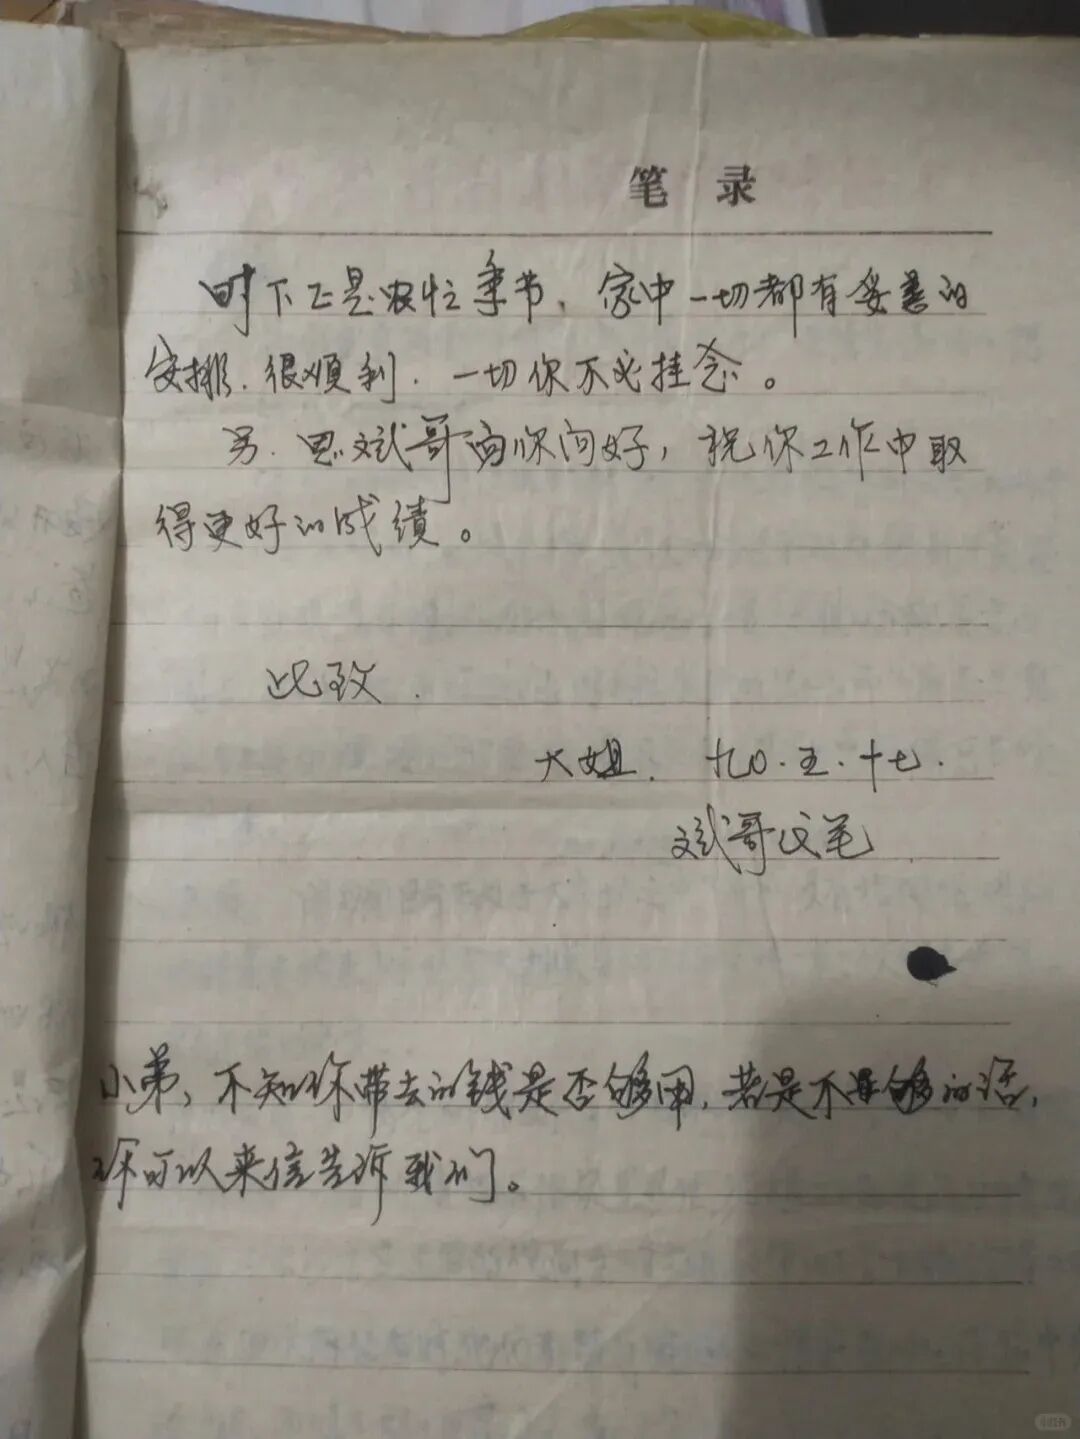 笔 录
时下正是农忙季节,家中一切都有妥善的
安排.很顺利.一切你不必挂念。
另.思斌哥向你问好,祝你工作中取
得更好的成绩。
此致.
大姐. 九〇.五.十七.
斌哥代笔
小弟,不知你带去的钱是否够用,若是不够的话,
你可以来信告诉我们。